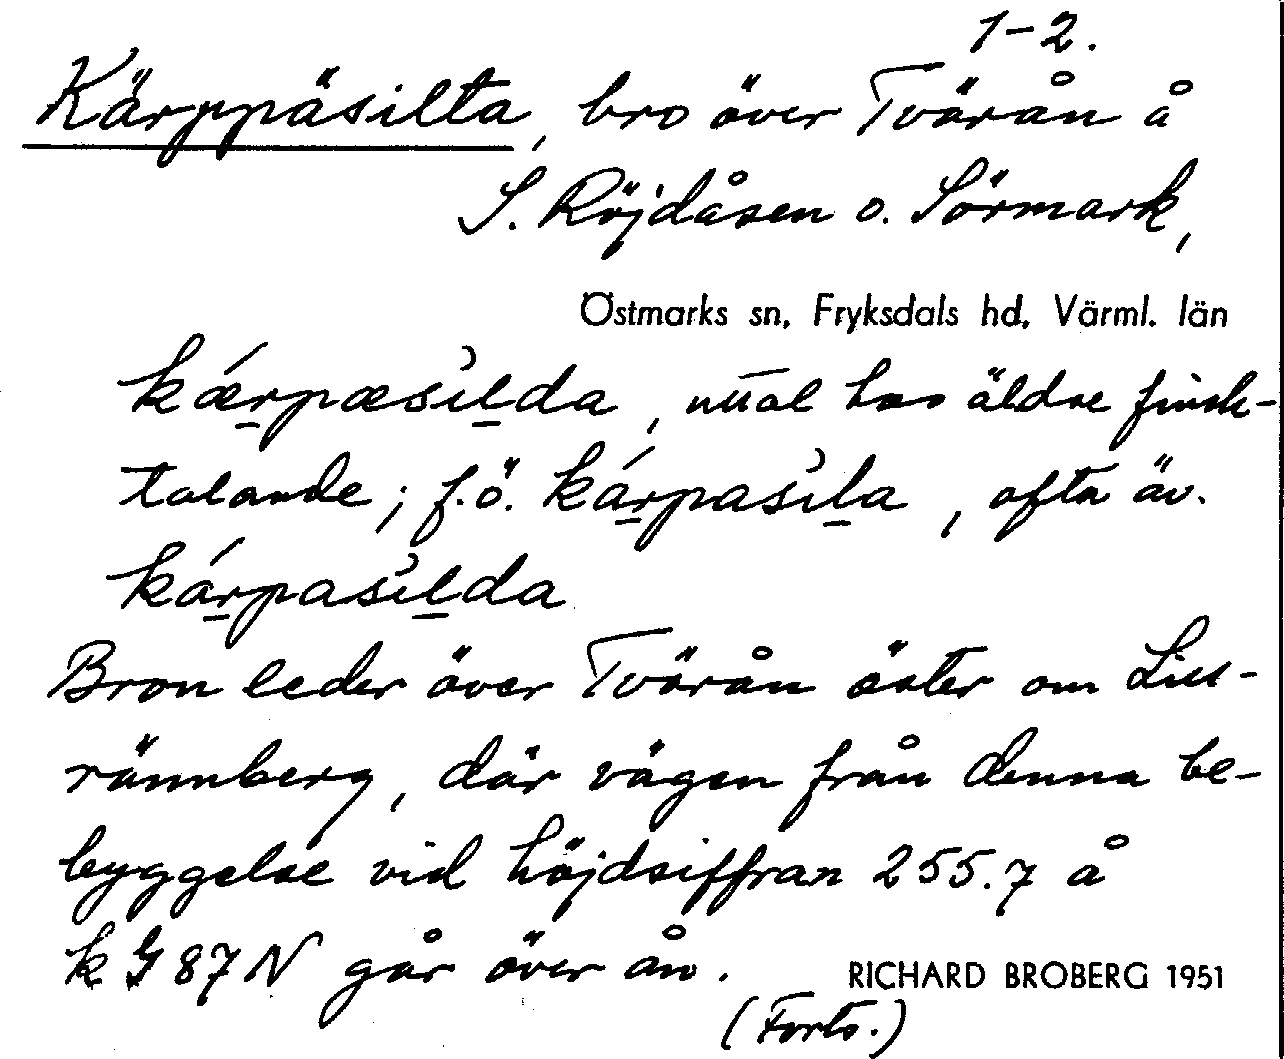 1-2.
Kärppäsilta, bro över Tvärån å
S. Röjdåsen o. Sörmark,
Östmarks sn, Fryksdals hd, Värml. län
kǽr̠pæsìl̠da, uttal hos äldre finsk-
talande; f.ö. kár̠pasìl̠a, ofta äv.
kár̠pasìl̠da
Bron leder över Tvärån öster om Liss-
rännberg, där vägen från denna be-
byggelse vid höjdsiffran 255.7 å
k G 87 N går över ån.
RICHARD BROBERG 1951
(Forts.)